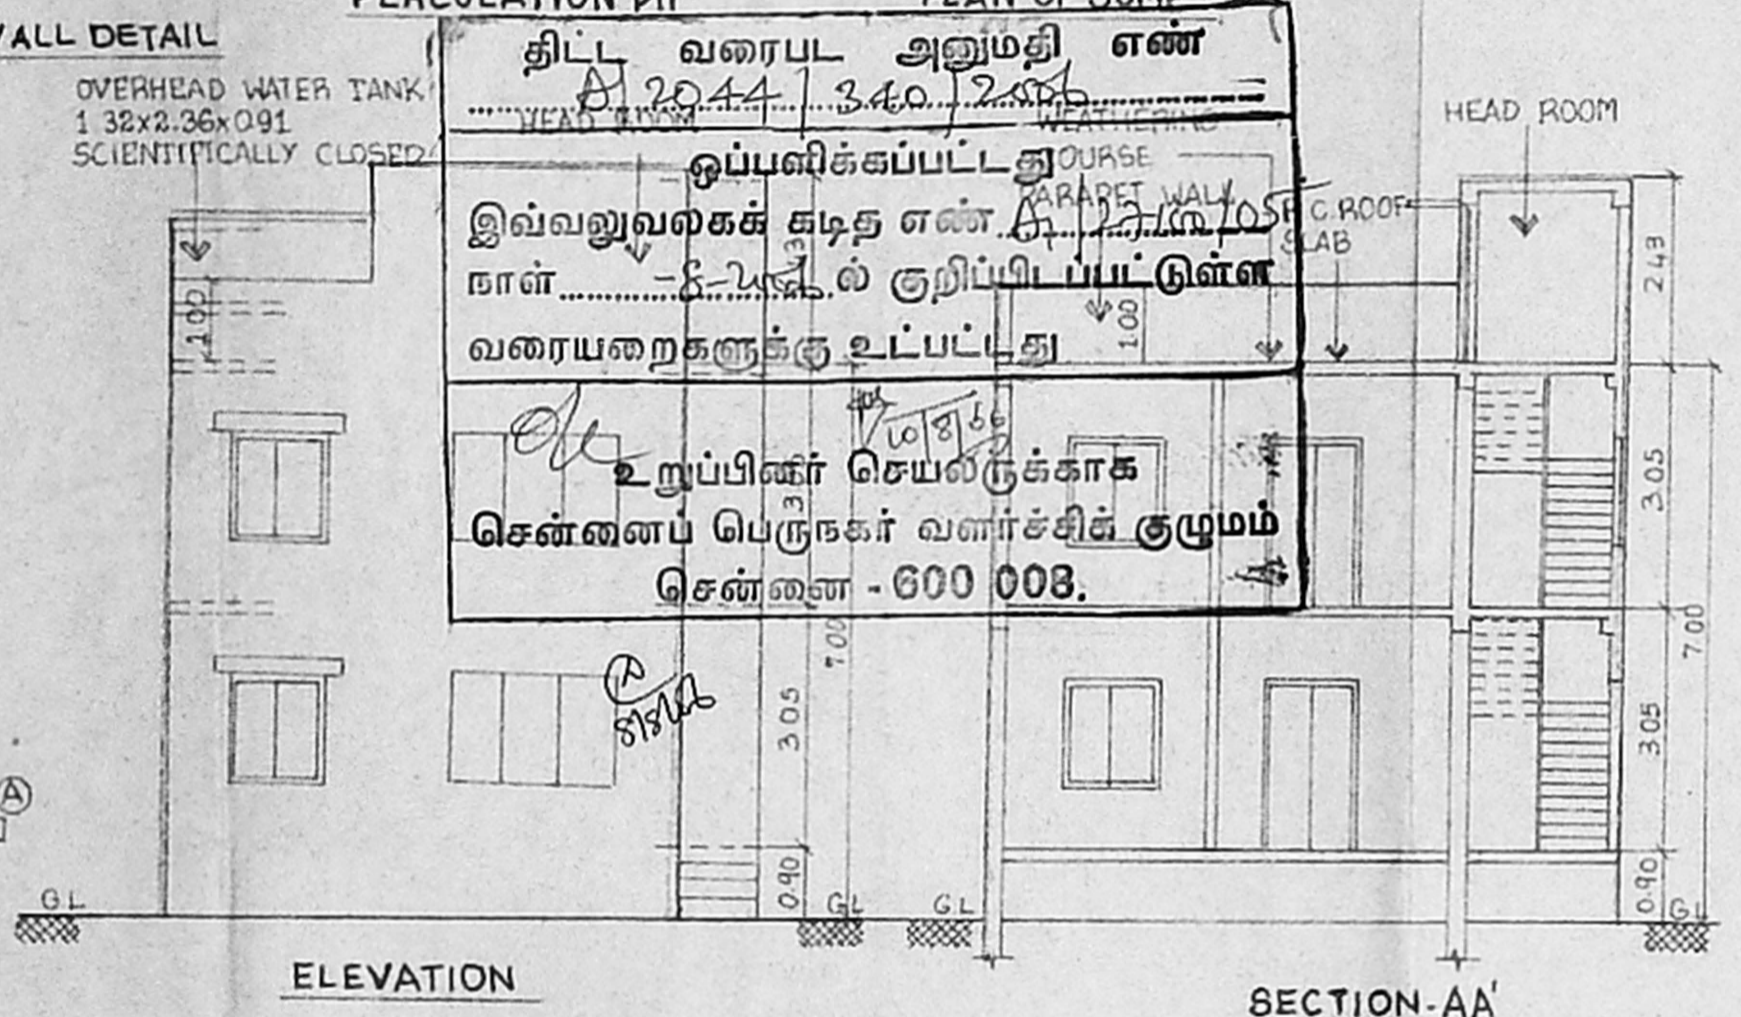 WALL DETAIL
OVERHEAD WATER TANK
1 32x2.36x0.91
SCIENTIFICALLY CLOSED
திட்ட வரைபட அனுமதி எண்
A/2044/340/2006
HEAD ROOM
WEATHERING
COURSE
PARAPET WALL
ஒப்பளிக்கப்பட்டது
இவ்வலுவலகக் கடித எண்
நாள் -8-2006 ல் குறிப்பிடப்பட்டுள்ள
வரையறைகளுக்கு உட்பட்டது
10/8/06
உறுப்பினர் செயலருக்காக
சென்னைப் பெருநகர் வளர்ச்சிக் குழுமம்
சென்னை - 600 008.
R.C.ROOF
SLAB
HEAD ROOM
1.00
1.00
2.43
3.05
3.05
7.00
0.90
7.00
3.05
0.90
A
8/8/06
A
GL
GL
GL
GL
ELEVATION
SECTION-AA'